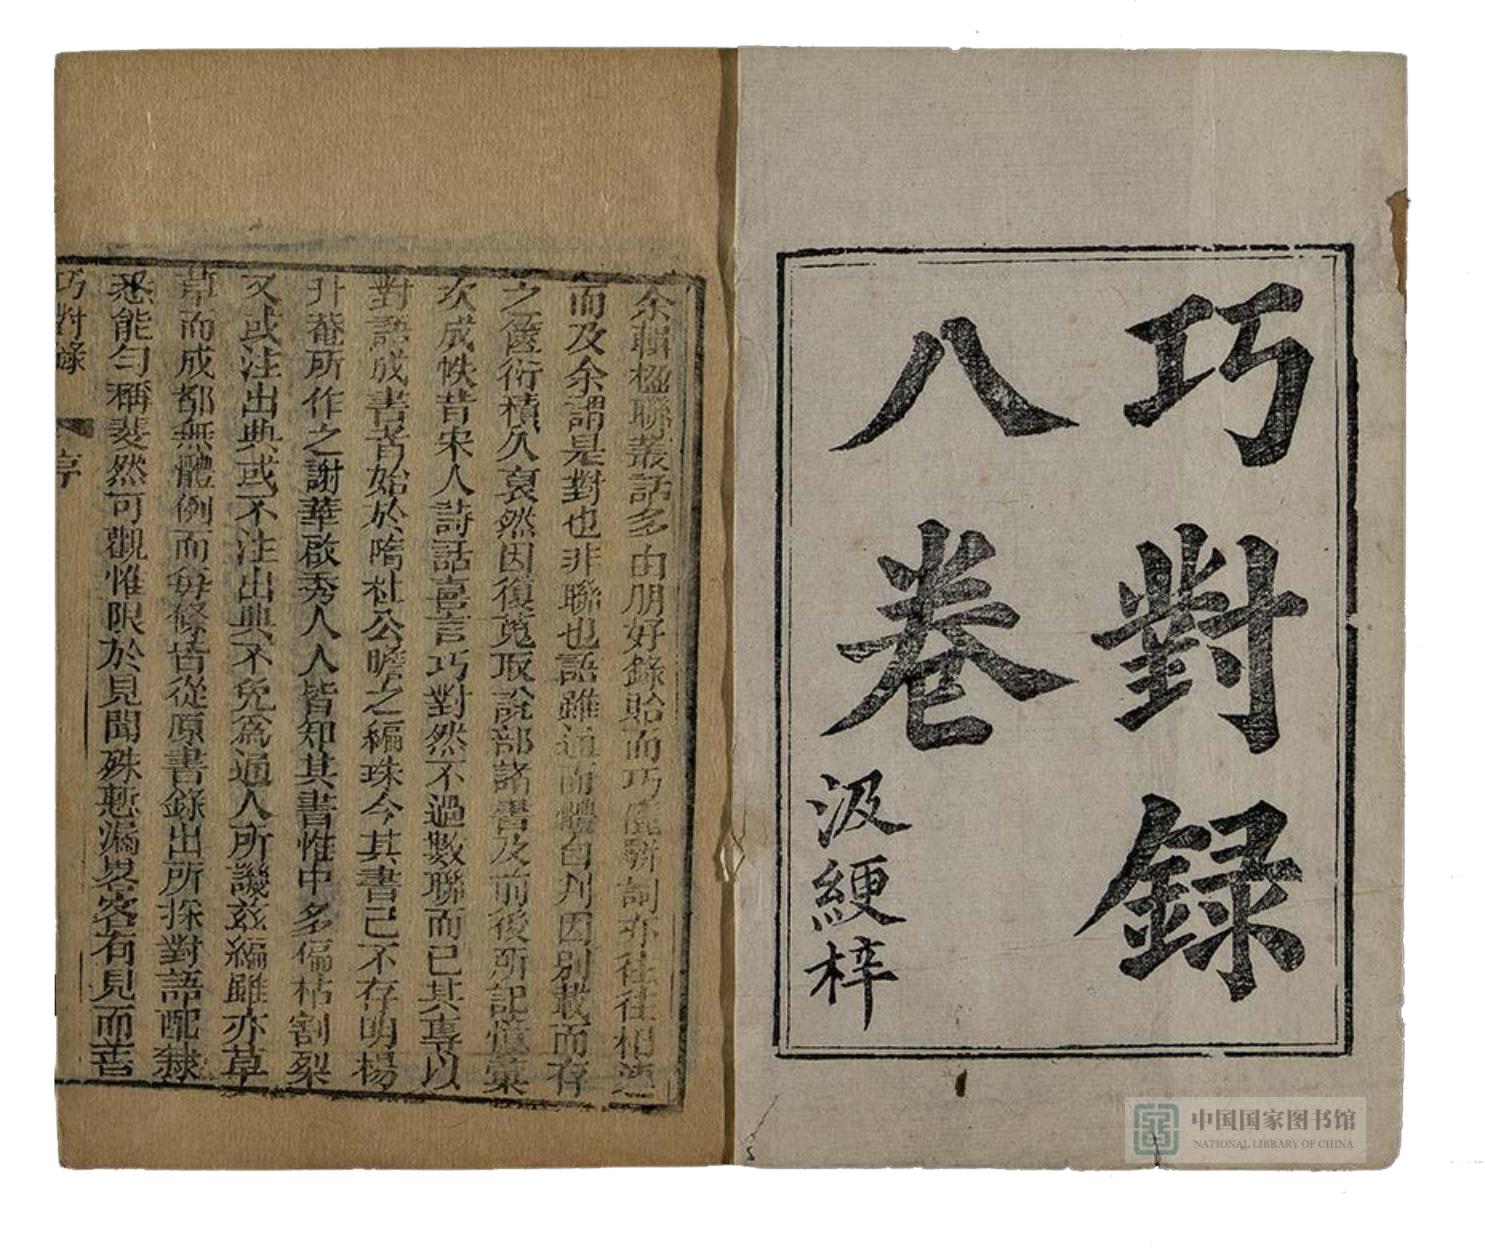 巧對録
八卷
汲綆梓
余輯楹聯叢話多由朋好錄貽而巧儷駢詞亦往往相連
而及余謂是對也非聯也語雖通而體自判因別載而存
之篋衍積久裒然因復蒐取說部諸書及前後所記憶彙
次成帙昔宋人詩話喜言巧對然不過數聯而已其專以
對語成書者始於隋杜公瞻之編珠今其書已不存明楊
升菴所作之謝華啟秀人人皆知其書惟中多偏枯割裂
又或注出典或不注出典不免為通人所譏茲編雖亦草
草而成都無體例而每條皆從原書錄出所採對語配隸
悉能勻稱斐然可觀惟限於見聞殊慙漏畧客有見而善
巧對錄
序
中国国家图书馆
NATIONAL LIBRARY OF CHINA